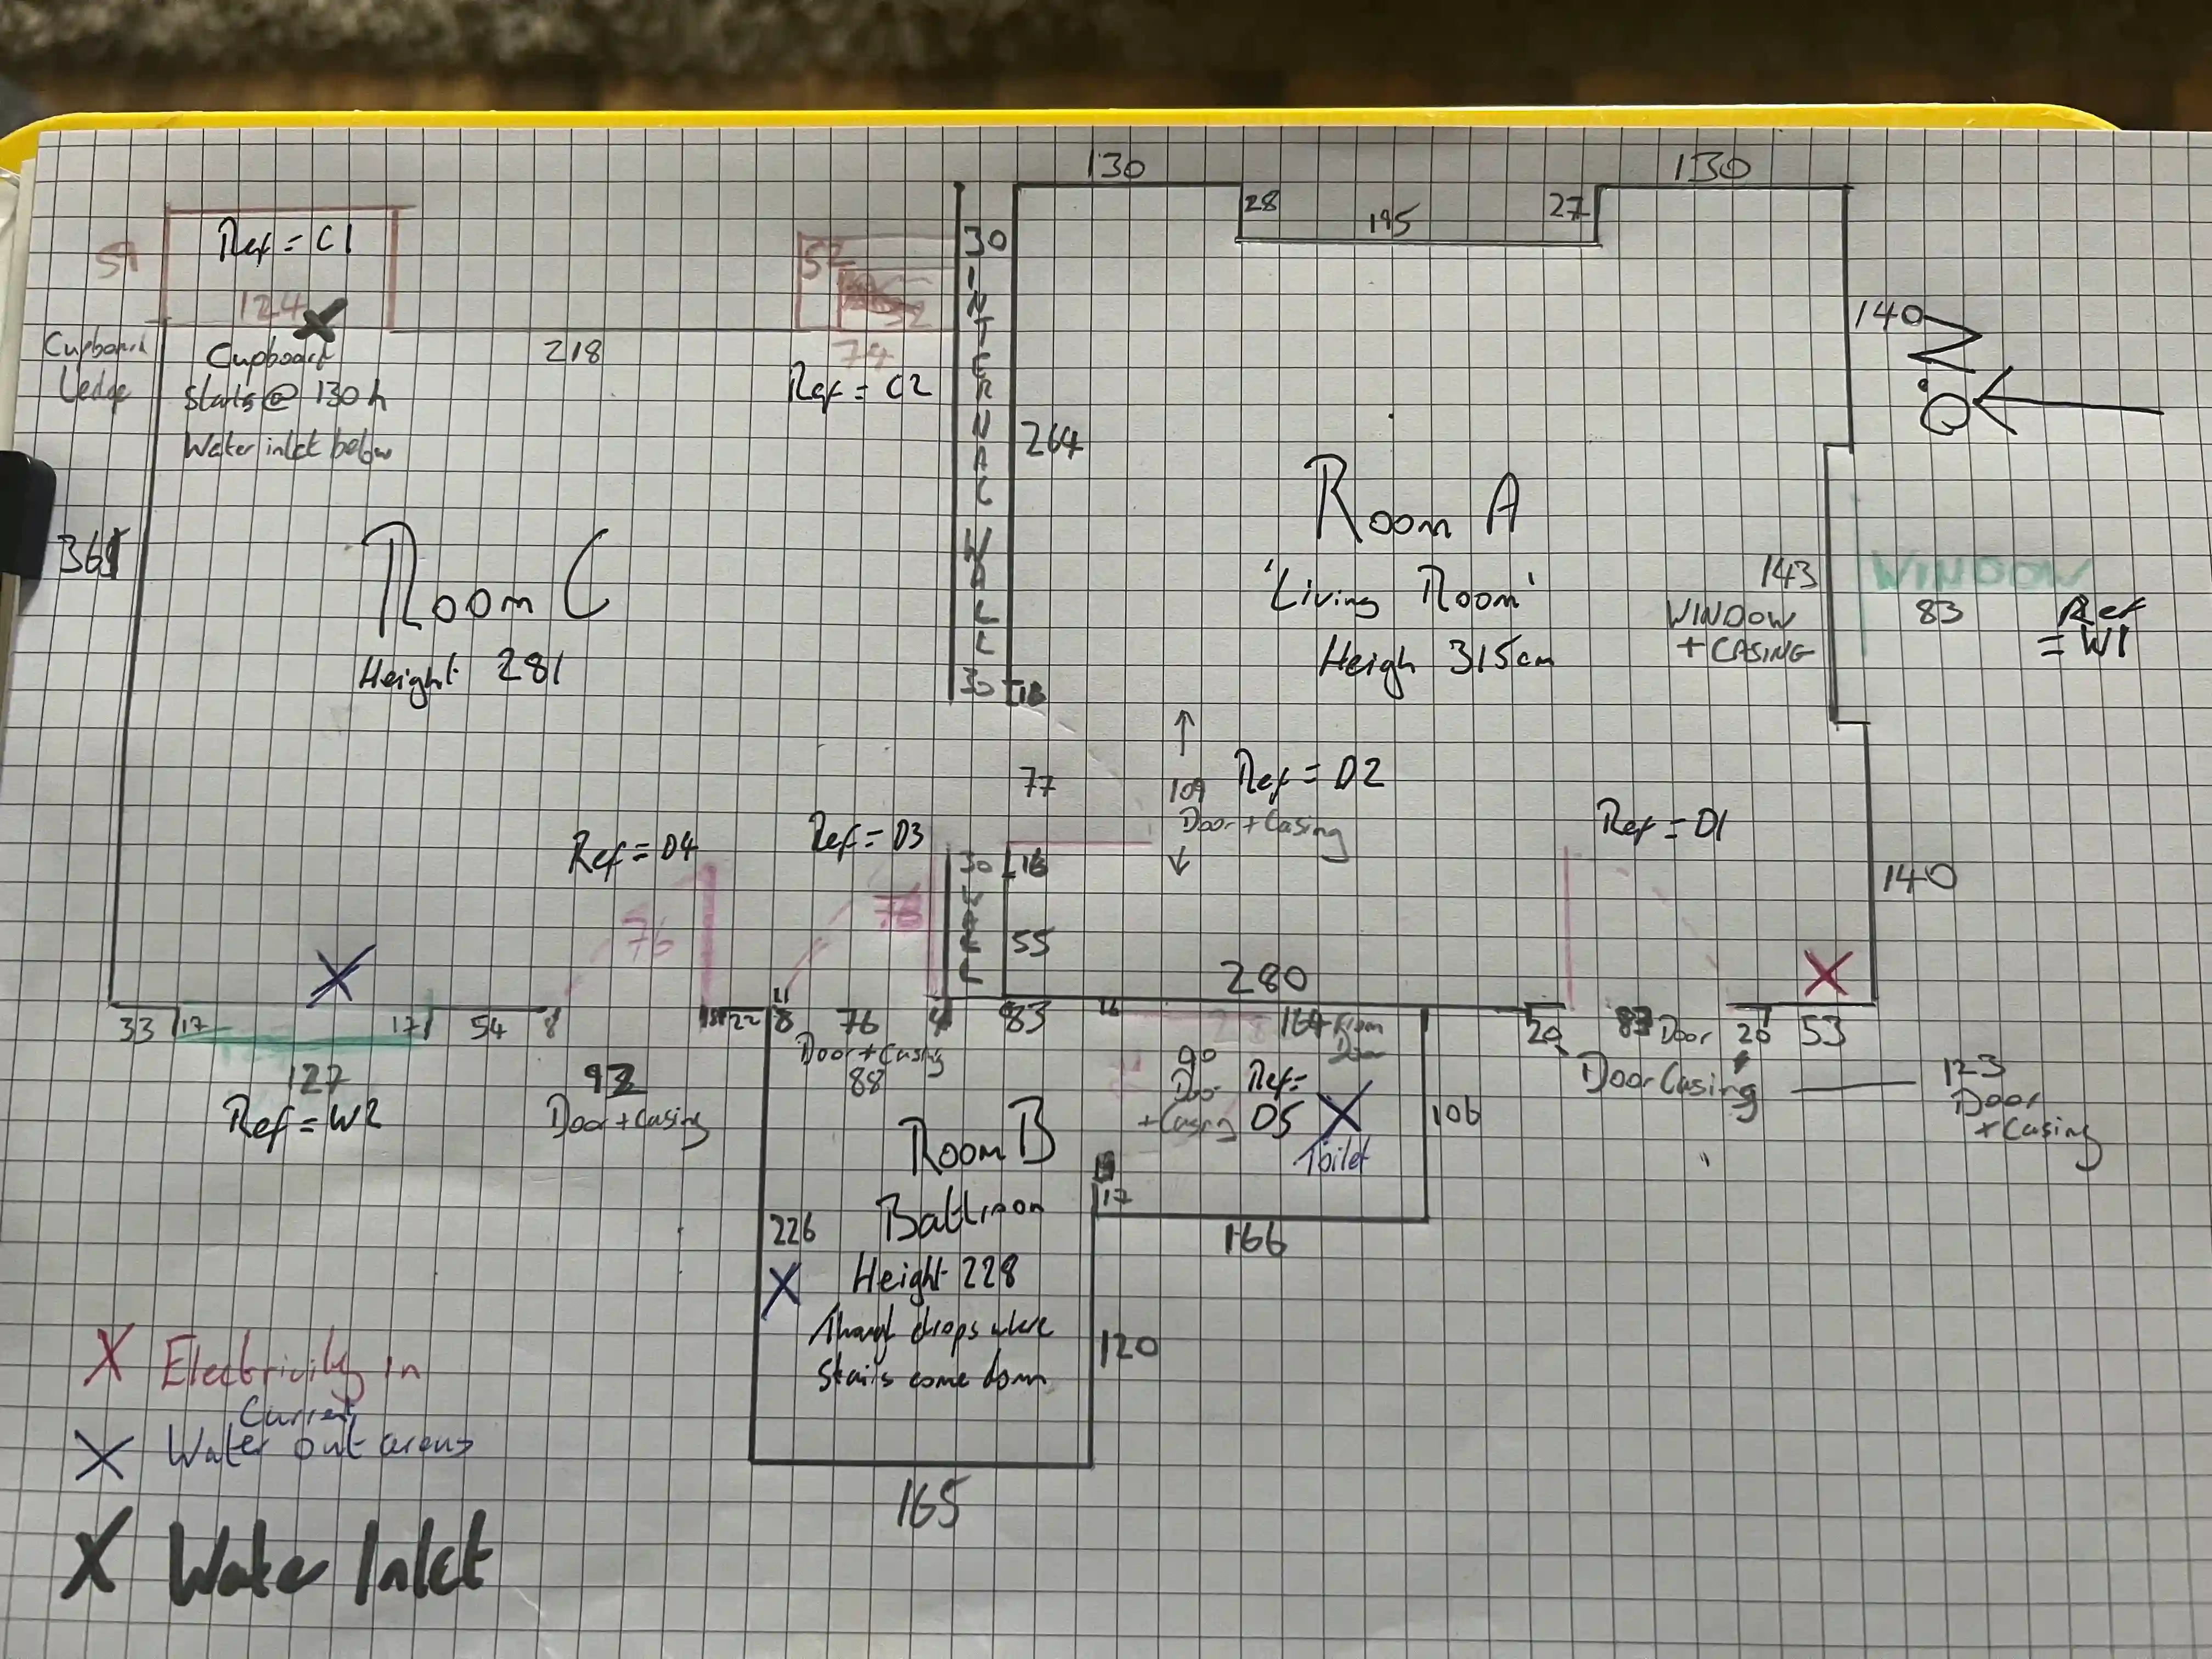 130
130
28
195
27
Ref = C1
59
124
52
30
INTERNAL WALL
30
140
N
Cupboard
Ledge
Cupboard
starts @ 130h
Water inlet below
218
74
Ref = C2
264
Room A
'Living Room'
Heigh 315cm
143
WINDOW
+ CASING
WINDOW
83
Ref
= W1
365
Room C
Height 281
16
77
109
Door + Casing
Ref = D2
Ref = D1
Ref = D4
Ref = D3
76
76
30
WALL
16
55
140
280
33
17
17
54
8
22
8
76
4
83
16
164 From
Door
20
83 Door
20
53
127
Ref = W2
92
Door + Casing
Door + Casing
88
90
Door
+ Casing
Ref =
D5
Toilet
106
Door Casing
123
Door
+ Casing
Room B
Bathroom
17
166
226
Height 228
Though drops where
stairs come down
120
165
X Electricity in
Current
X Water out areas
X Water Inlet